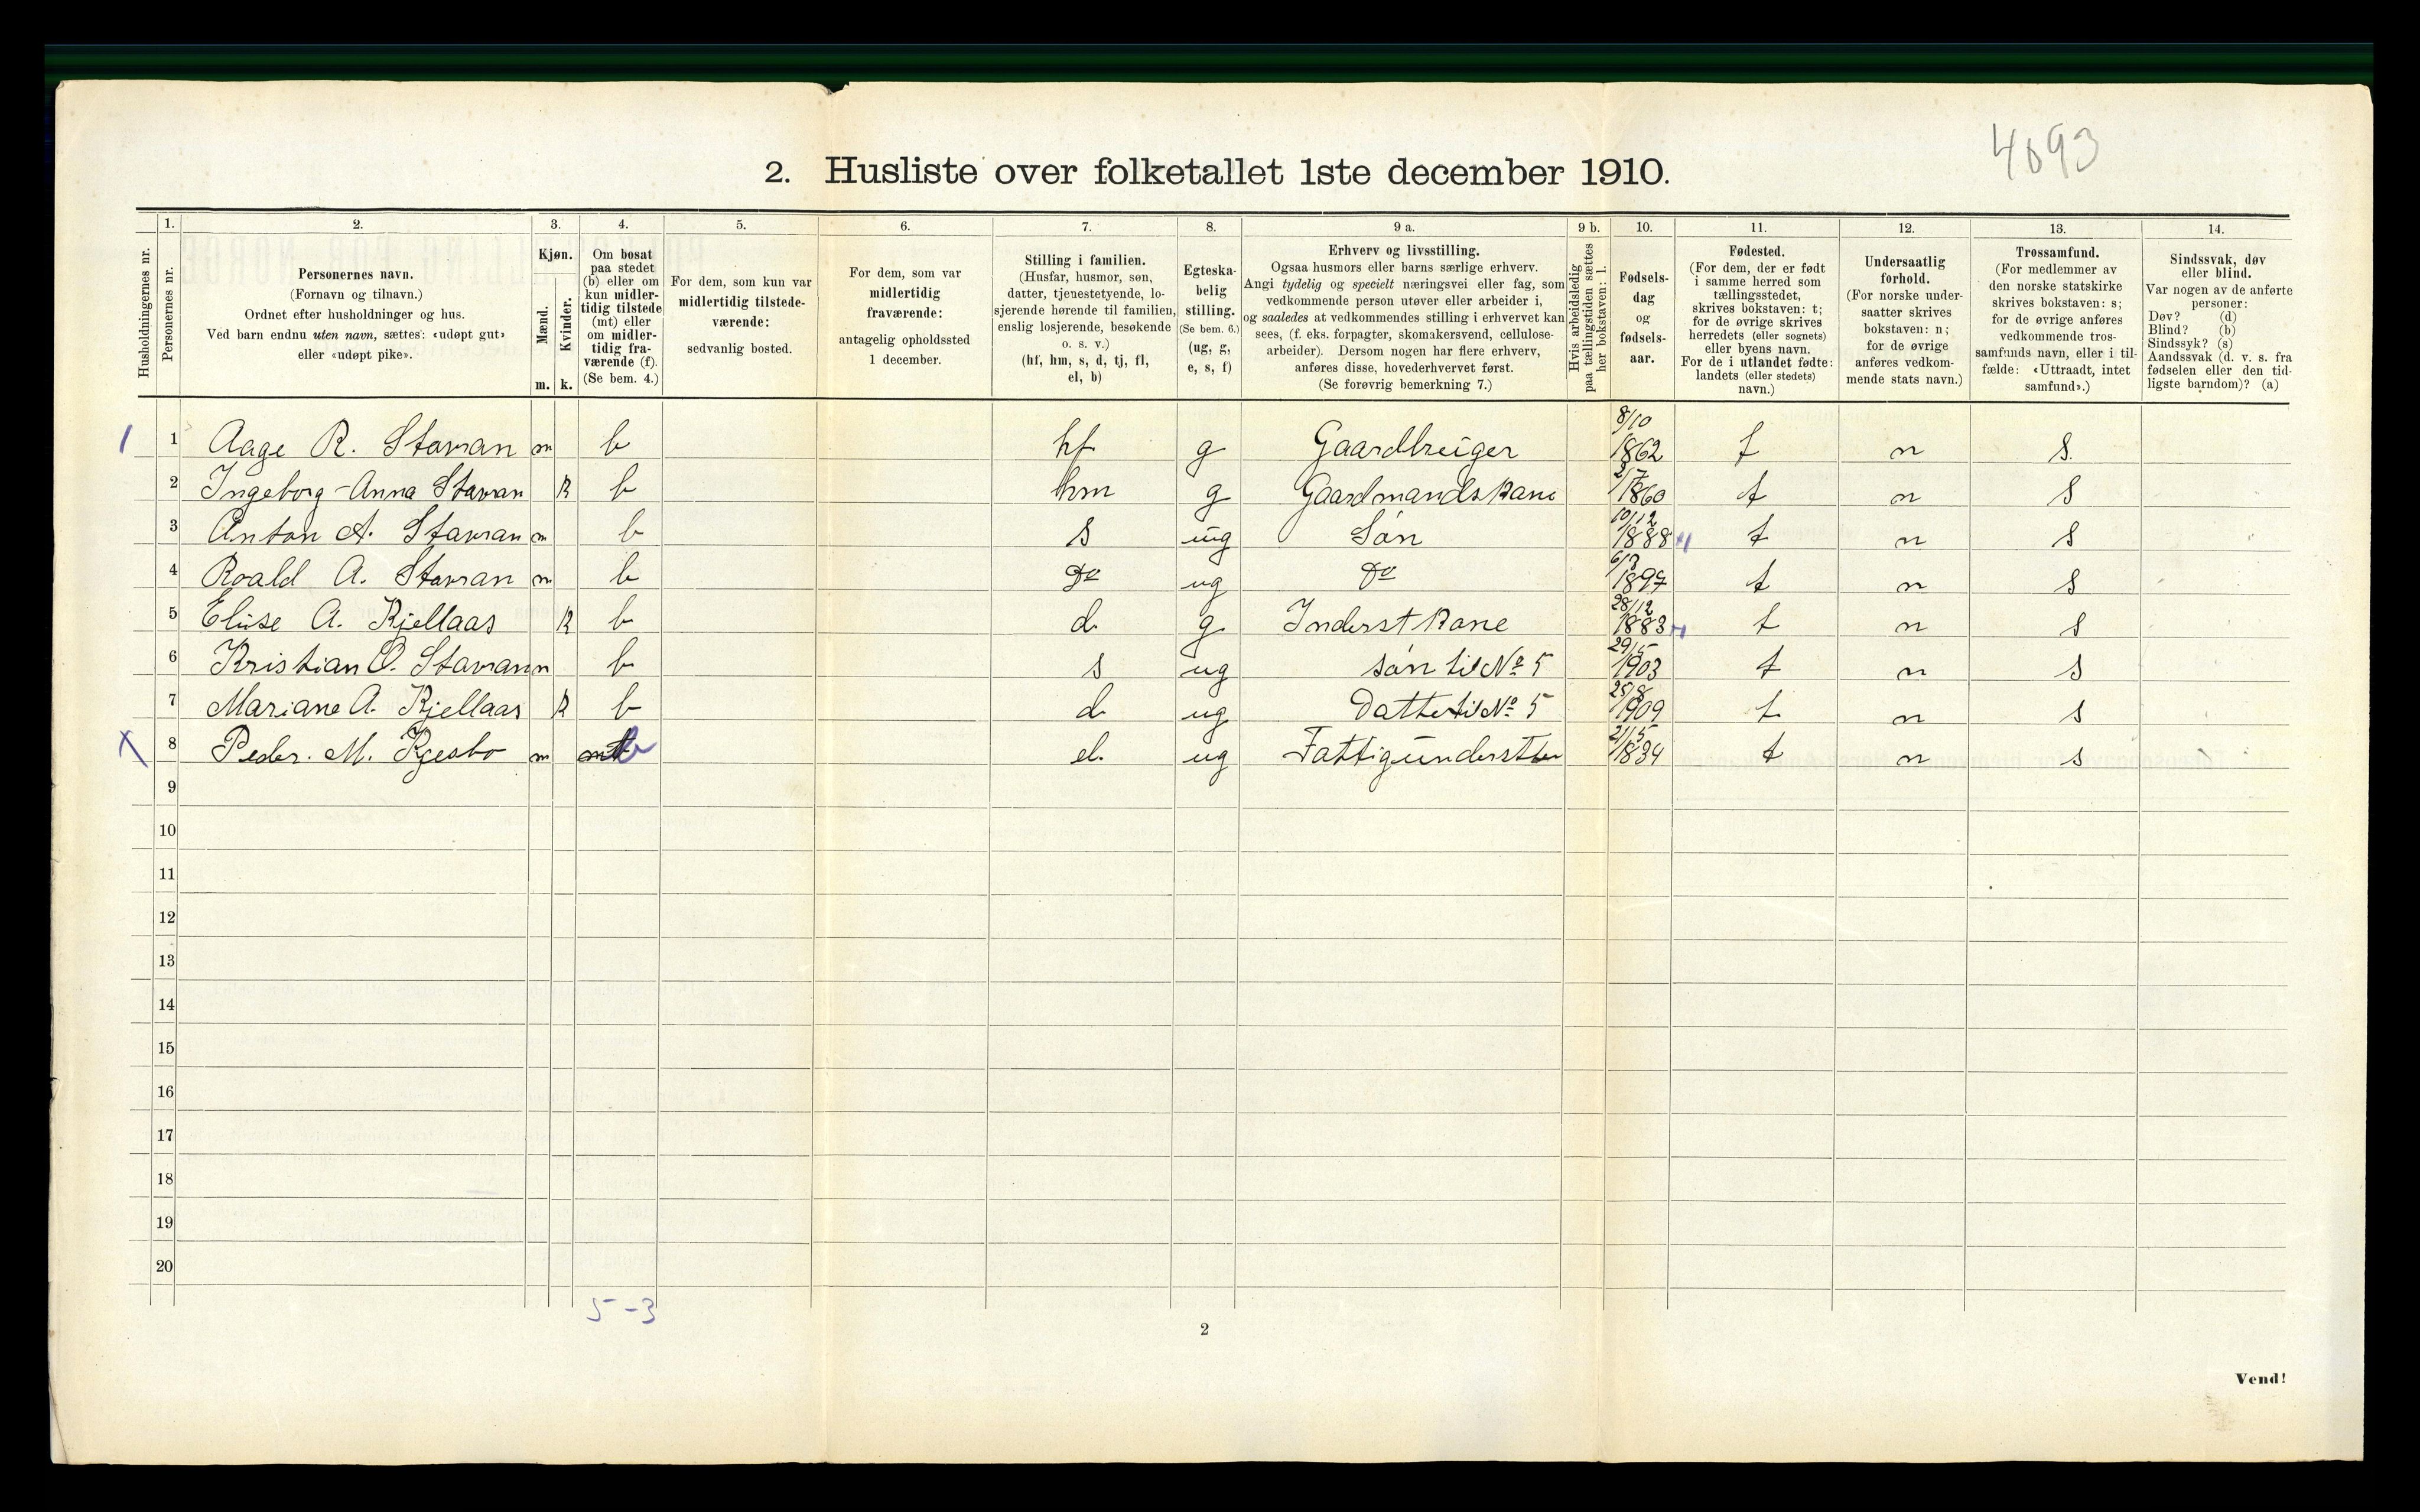 4093
2. Husliste over folketallet 1ste december 1910.
Husholdningernes nr.
1. Personernes nr.
2. Personernes navn.
(Fornavn og tilnavn.)
Ordnet efter husholdninger og hus.
Ved barn endnu uten navn, sættes: «udøpt gut»
eller «udøpt pike».
3. Kjøn.
Mænd. m.
Kvinder. k.
4. Om bosat
paa stedet
(b) eller om
kun midler-
tidig tilstede
(mt) eller
om midler-
tidig fra-
værende (f).
(Se bem. 4.)
5. For dem, som kun var
midlertidig tilstede-
værende:
sedvanlig bosted.
6. For dem, som var
midlertidig
fraværende:
antagelig opholdssted
1 december.
7. Stilling i familien.
(Husfar, husmor, søn,
datter, tjenestetyende, lo-
sjerende hørende til familien,
enslig losjerende, besøkende
o. s. v.)
(hf, hm, s, d, tj, fl,
el, b)
8. Egteska-
belig
stilling.
(Se bem. 6.)
(ug, g,
e, s, f)
9 a. Erhverv og livsstilling.
Ogsaa husmors eller barns særlige erhverv.
Angi tydelig og specielt næringsvei eller fag, som
vedkommende person utøver eller arbeider i,
og saaledes at vedkommendes stilling i erhvervet kan
sees, (f. eks. forpagter, skomakersvend, cellulose-
arbeider). Dersom nogen har flere erhverv,
anføres disse, hovederhvervet først.
(Se forøvrig bemerkning 7.)
9 b. Hvis arbeidsledig
paa tællingstiden sættes
her bokstaven: l.
10. Fødsels-
dag
og
fødsels-
aar.
11. Fødested.
(For dem, der er født
i samme herred som
tællingsstedet,
skrives bokstaven: t;
for de øvrige skrives
herredets (eller sognets)
eller byens navn.
For de i utlandet fødte:
landets (eller stedets)
navn.)
12. Undersaatlig
forhold.
(For norske under-
saatter skrives
bokstaven: n;
for de øvrige
anføres vedkom-
mende stats navn.)
13. Trossamfund.
(For medlemmer av
den norske statskirke
skrives bokstaven: s;
for de øvrige anføres
vedkommende tros-
samfunds navn, eller i til-
fælde: «Uttraadt, intet
samfund».)
14. Sindssvak, døv
eller blind.
Var nogen av de anførte
personer:
Døv? (d)
Blind? (b)
Sindssyk? (s)
Aandssvak (d. v. s. fra
fødselen eller den tid-
ligste barndom)? (a)
1 1 Aage R. Stavran m b hf g Gaardbruger 8/10 1862 t n s.
2 Ingeborg-Anna Stavran k b hm g Gaardmandskane 1860 t n s
3 Anton A. Stavran m b s ug Søn 10/12 1888 t n s
4 Roald A. Stavran m b Do ug Do 1897 t n s
5 Elise A. Kjellaas k b d g Inderstkone 28/12 1883 t n s
6 Kristian O. Stavran m b s ug søn til No 5 29/5 1903 t n s
7 Mariane A. Kjellaas k b d ug Datter til No 5 25/8 1909 t n s
x 8 Peder. M. m mt b el. ug 21/5 1834 t n s
9
10
11
12
13
14
15
16
17
18
19
20
5-3
2
Vend!